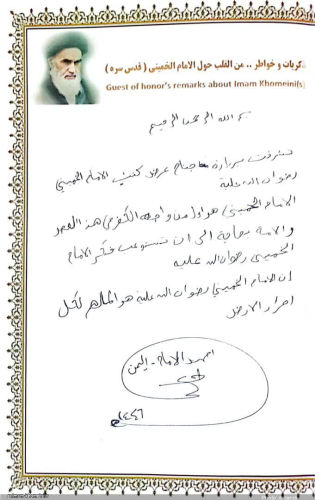 ذكريات و خواطر .. من القلب حول الامام الخميني ( قدس سره )
Guest of honor's remarks about Imam Khomeini(s)
بسم الله الرحمن الرحيم
تشرفت بزيارة جناح عرض كتب الامام الخميني
رضوان الله عليه
الامام الخميني هو اول من واجه الكفر في هذا العصر
والامة بحاجة الى ان تستوعب فكر الامام
الخميني رضوان الله عليه
ان الامام الخميني رضوان الله عليه هو الملهم لكل
احرار الارض
اليمن
١٤٤٦هـ